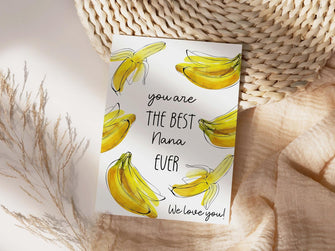 you are
THE BEST
Nana
EVER
We love you!